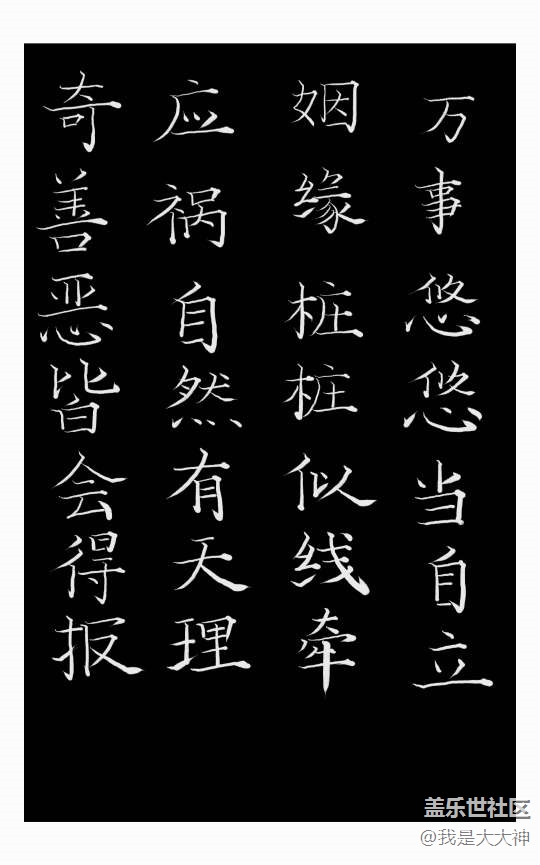 万事悠悠当自立
姻缘桩桩似线牵
应祸自然有天理
奇善恶皆会得报
盖乐世社区
@我是大大神